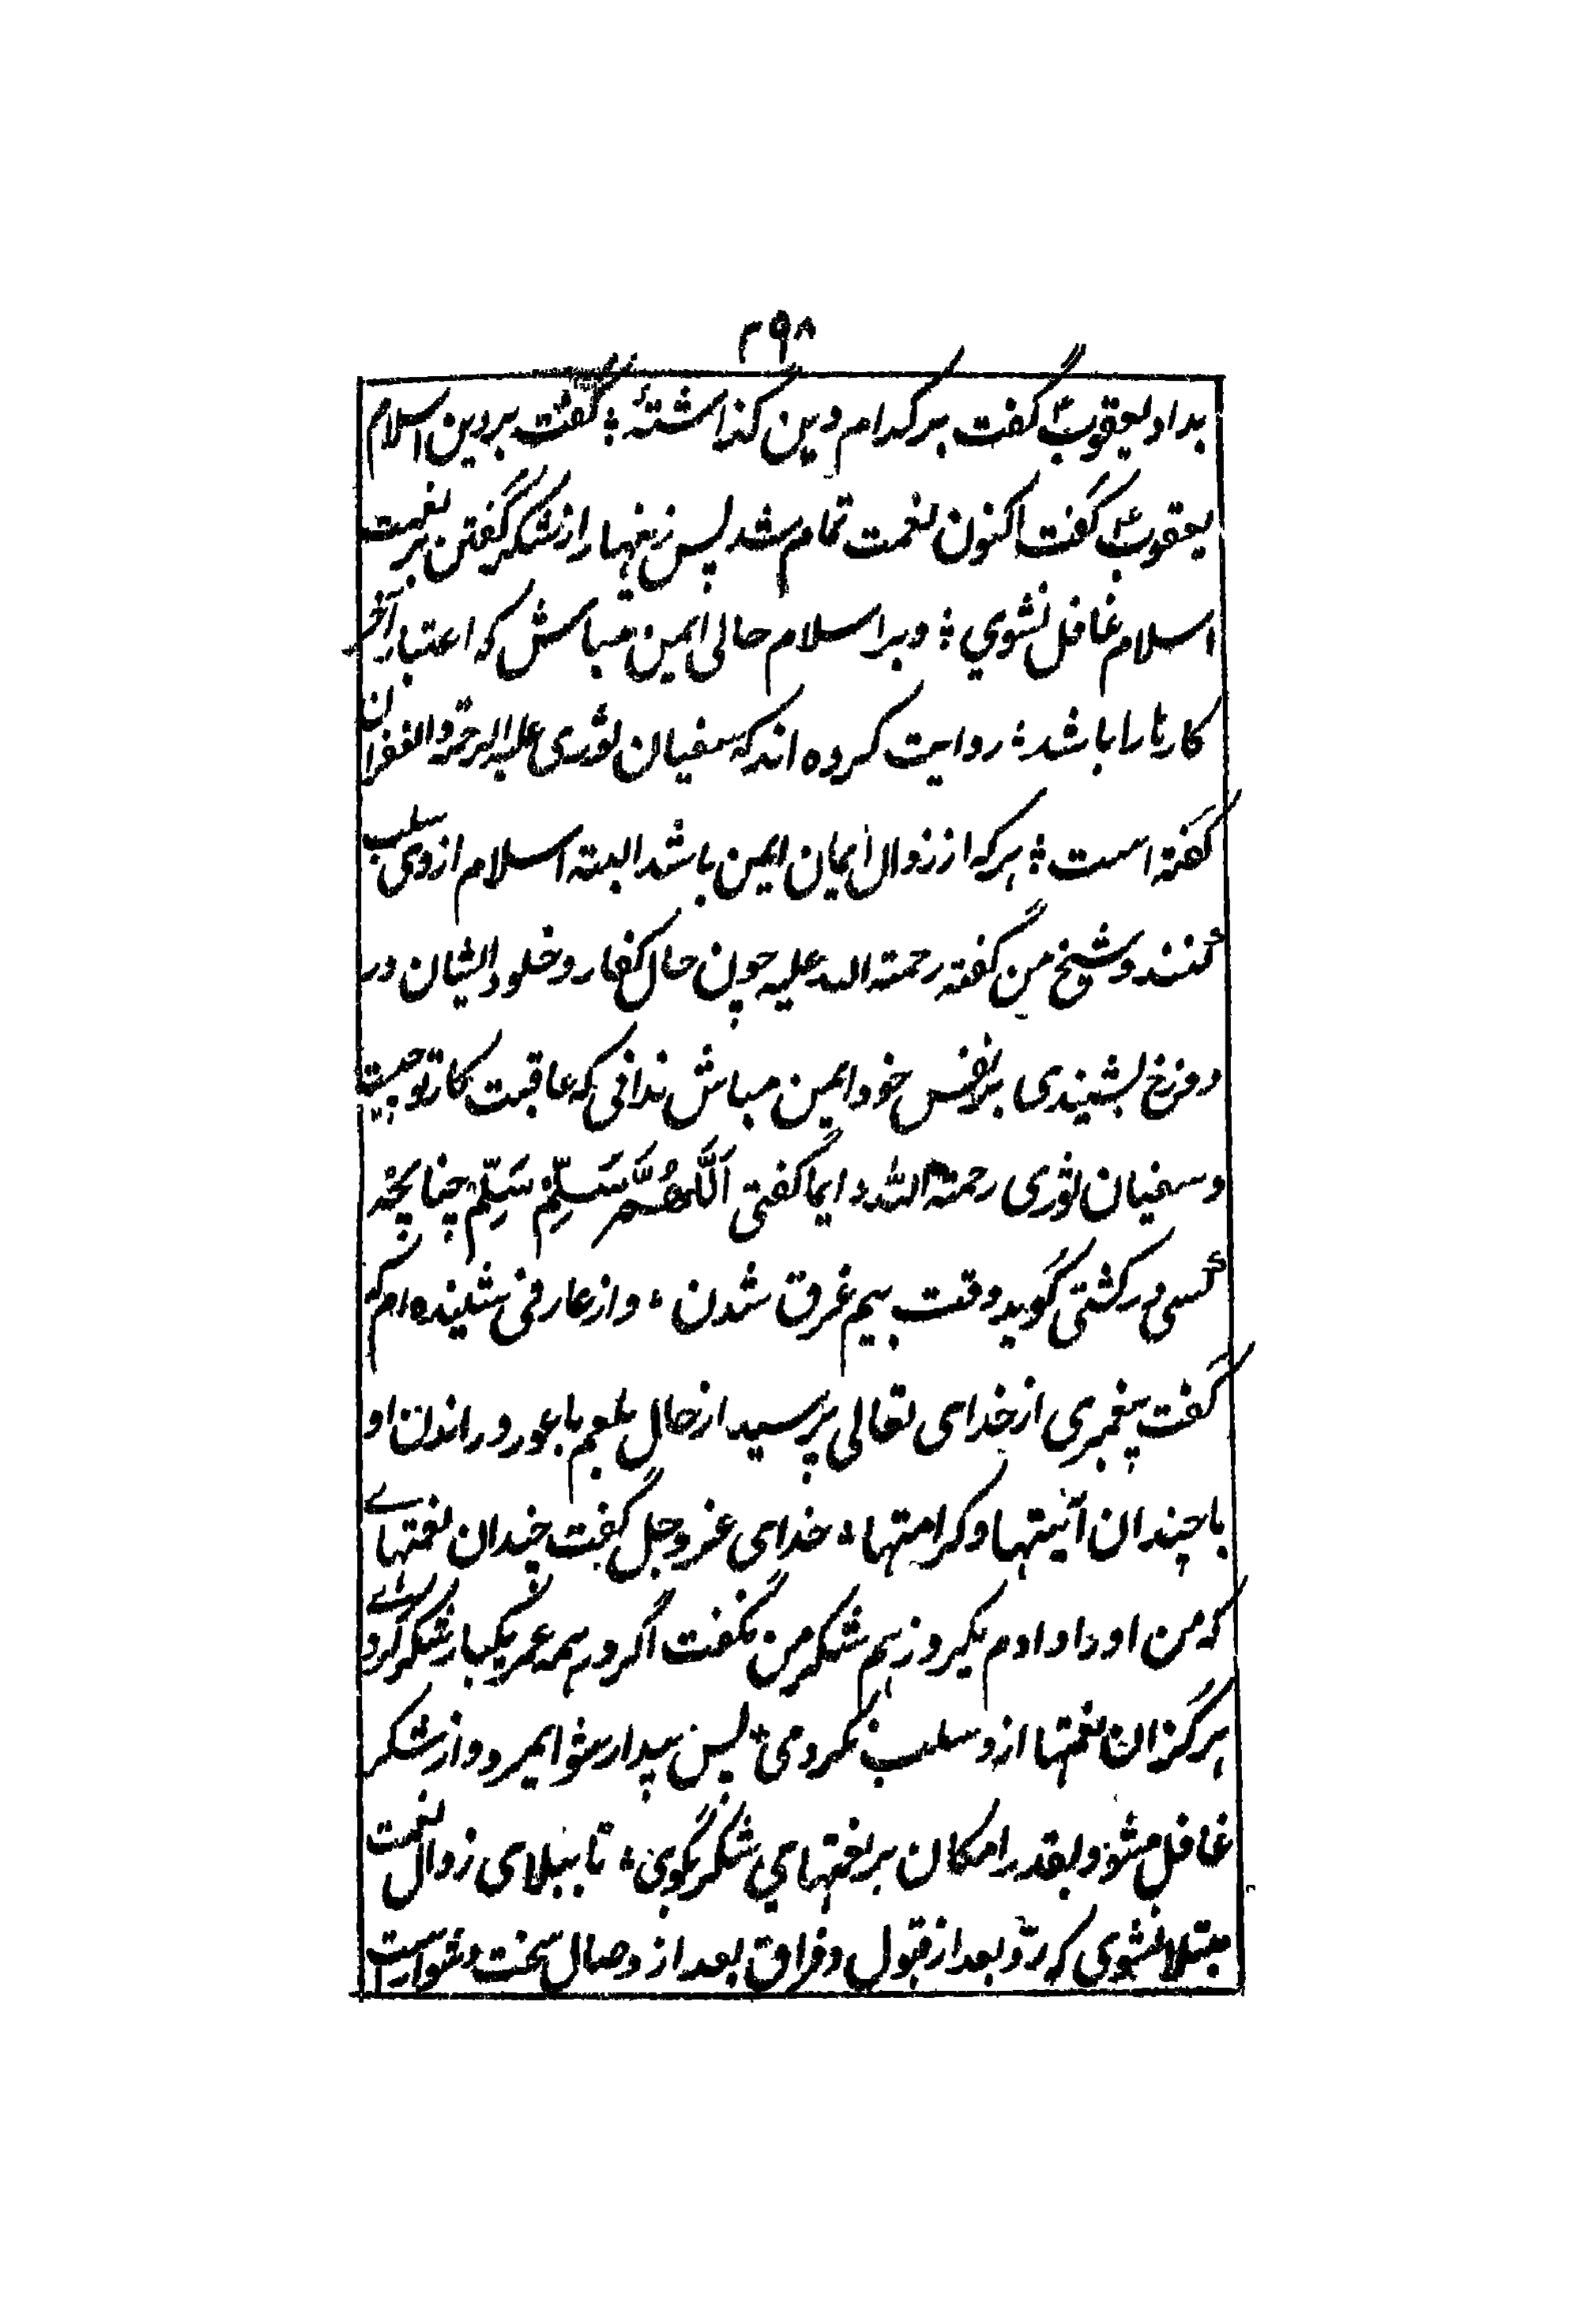 ۲۹۸
بداد یعقوبؑ گفت بر کدام دین گذاشتهٔ ؛ گفت بر دین اسلام
یعقوبؑ گفت اکنون نعمت تمام شد پس زینهار از شکر گفتن بر نعمت
اسلام غافل نشوی ؛ و بر اسلام حالی ایمن مباش که اعتبار آخر
کارها را باشد ؛ روایت کرده اند که سفیان ثوری علیه الرحمة والغفران
گفته است ؛ هر که از زوال ایمان ایمن باشد البته اسلام از وی سلب
کنند و شیخ من گفته رحمته الله علیه چون حال کفار و خلود ایشان در
دوزخ بشنیدی بر نفس خود ایمن مباش ندانی که عاقبت کار تو چیست
و سفیان ثوری رحمة الله دایما گفتی اَللّٰهُمَّ سَلِّمْ سَلِّمْ چنانچه
کسی در کشتی گوید وقت بیم غرق شدن ؛ و از عارفی شنیده ام که
گفت پیغمبری از خدای تعالی پرسید از حال بلعم باعور و راندن او
با چندان آیتها و کرامتها ؛ خدای عز و جل گفت چندان نعمتهاے
که من او را دادم یکروز هم شکر من نگفت اگر در همه عمر یکبار شکر کردے
هرگز ان نعمتها ازو سلب نکردمی ؛ پس بیدار شو ایمرد و از شکر
غافل مشو و بقدر امکان بر نعمتهای شکر بگوی ؛ تا ببلای زوال نعمت
مبتلا نشوی که ردّ بعد از قبول و فراق بعد از وصال سخت دشوار است